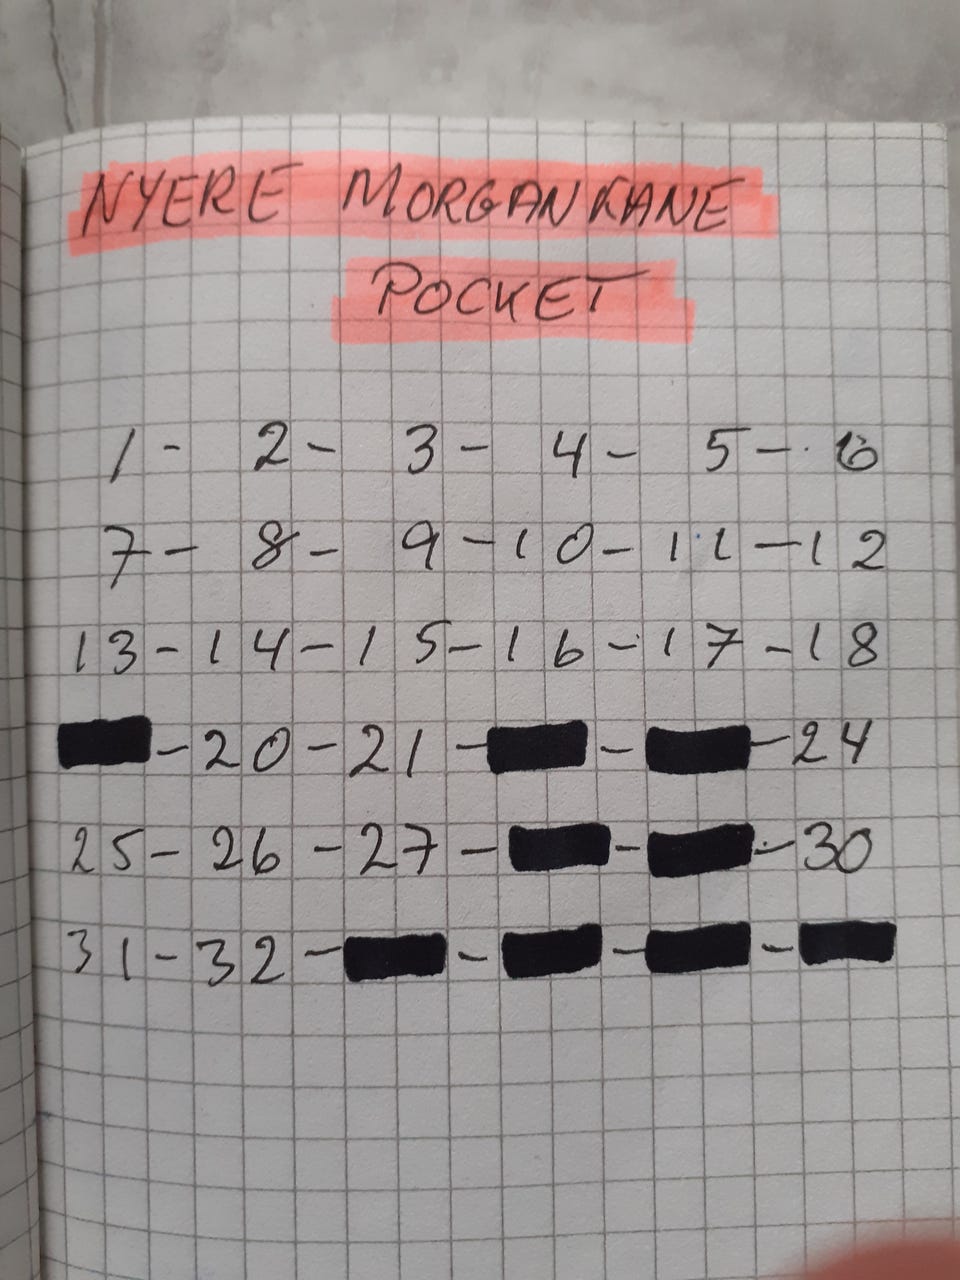 NYERE MORGAN KANE
POCKET
1 - 2 - 3 - 4 - 5 - 6
7 - 8 - 9 - 10 - 11 - 12
13 - 14 - 15 - 16 - 17 - 18
- 20 - 21 - - 24
25 - 26 - 27 - - - 30
31 - 32 - - - -